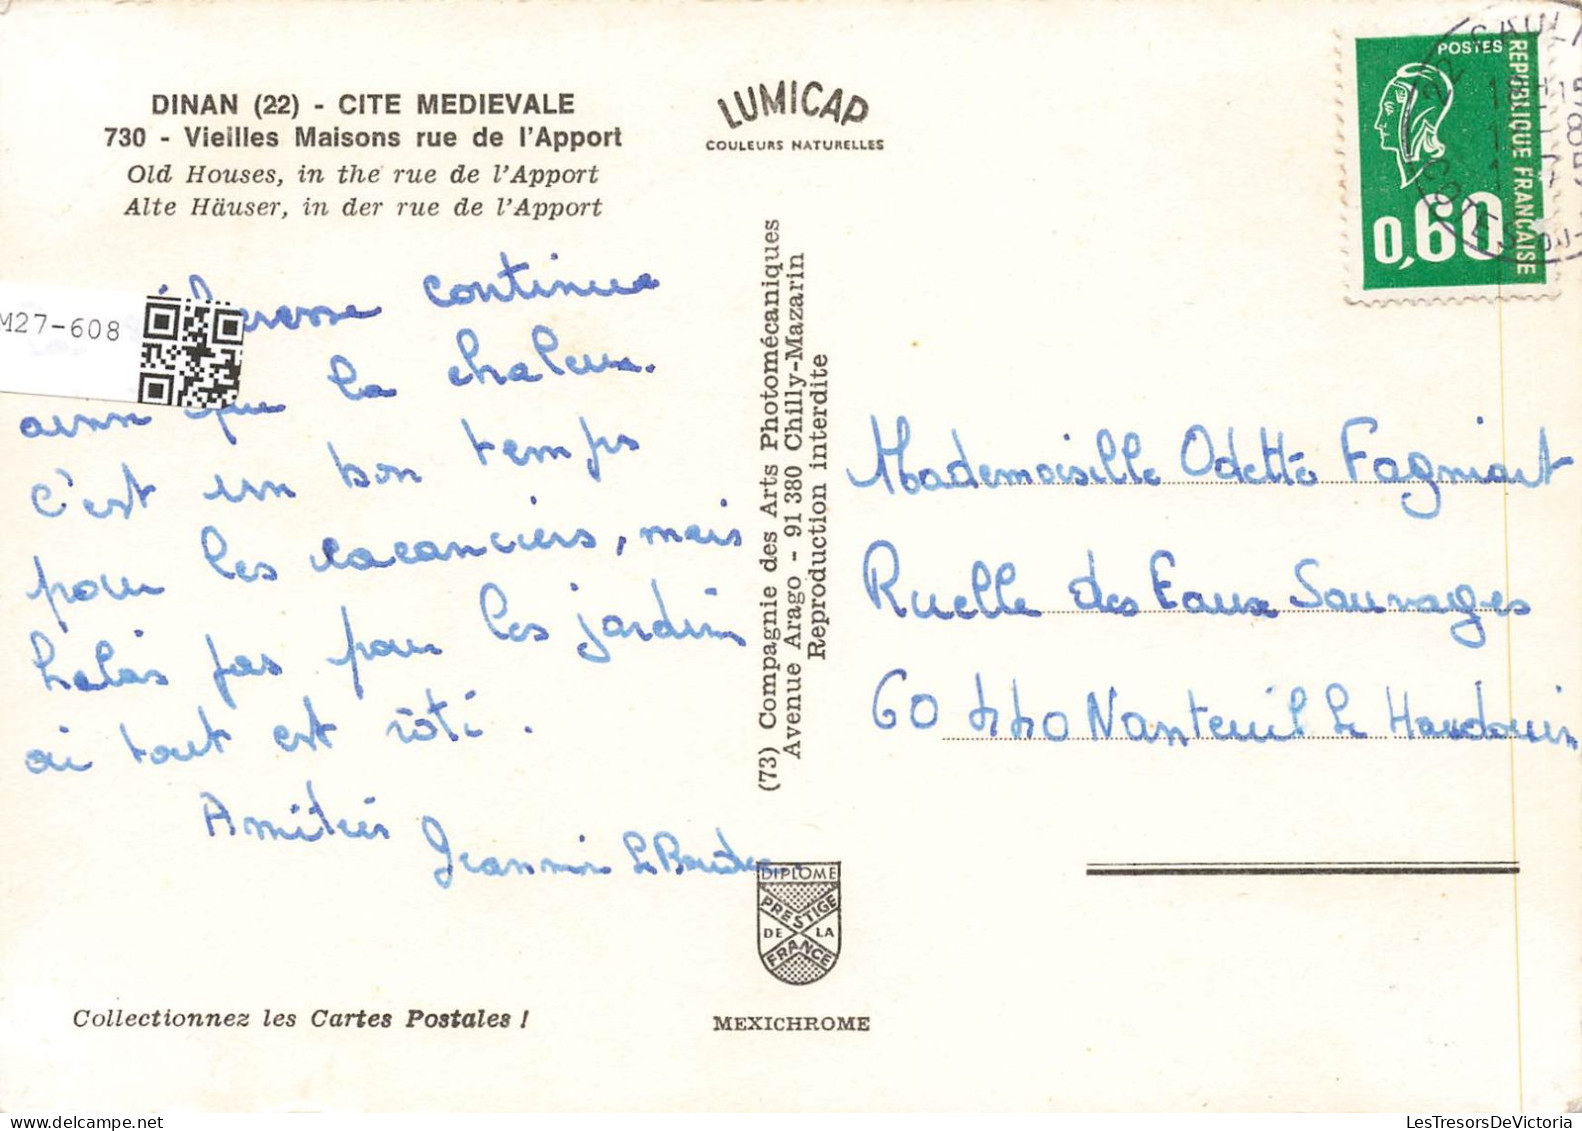 DINAN (22) - CITE MEDIEVALE
730 - Vieilles Maisons rue de l'Apport
Old Houses, in the rue de l'Apport
Alte Häuser, in der rue de l'Apport
LUMICAP
COULEURS NATURELLES
POSTES
REPUBLIQUE FRANÇAISE
0,60
22 CAUL
COTES DU
M27-608
continue
ainsi que la chaleur.
c'est un bon temps
pour les vacanciers, mais
hélas pas pour les jardins
où tout est rôti.
Amitiés
Jeannine Le
(73) Compagnie des Arts Photomécaniques
Avenue Arago - 91 380 Chilly-Mazarin
Reproduction interdite
Mademoiselle Odette Fagniart
Ruelle des Eaux Sauvages
60440 Nanteuil Le Haudouin
DIPLOME
PRESTIGE
DE LA
FRANCE
Collectionnez les Cartes Postales !
MEXICHROME
LesTresorsDeVictoria